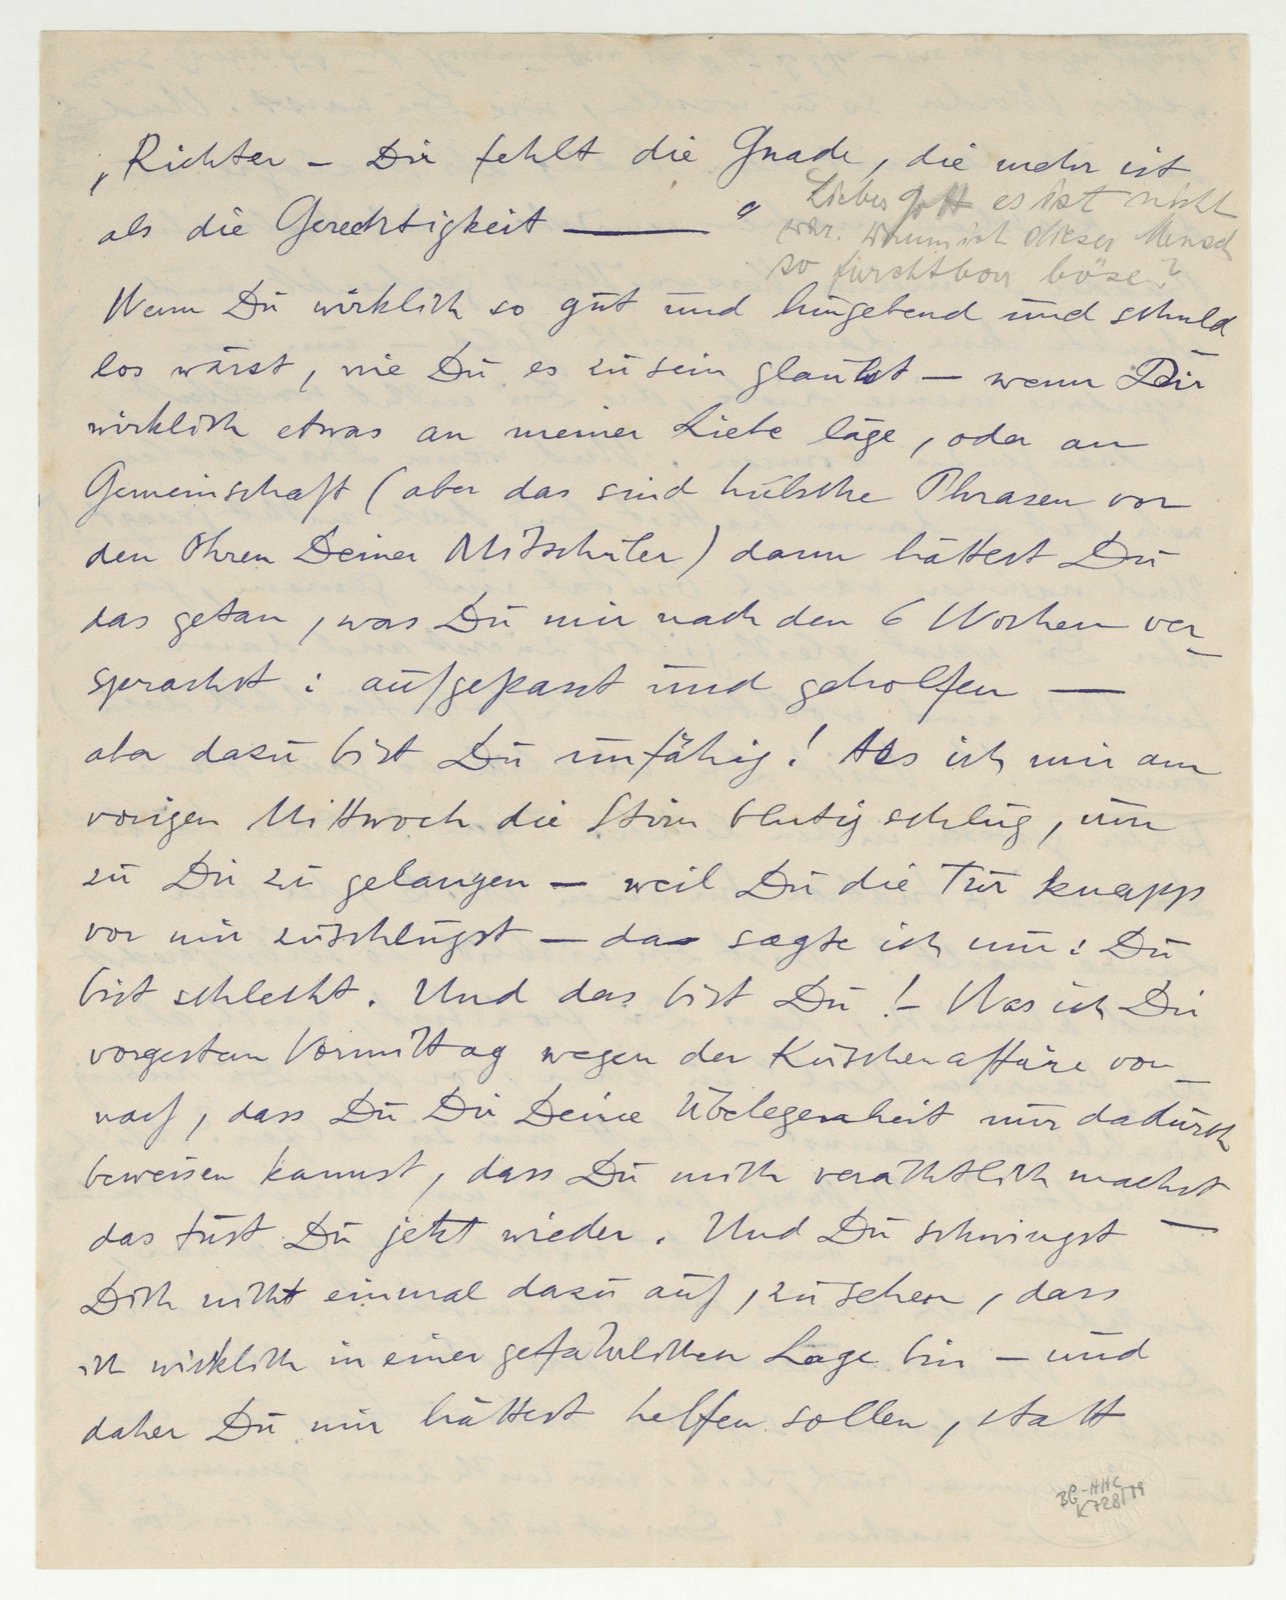 „Richter – Dir fehlt die Gnade, die mehr ist
als die Gerechtigkeit ——— "
Lieber Gott es ist nicht
war. warum ist dieser Mensch
so furchtbar böse?
Wenn Du wirklich so gut und hingebend und schuld
los wärst, wie Du es zu sein glaubst – wenn Dir
wirklich etwas an meiner Liebe läge, oder an
Gemeinschaft (aber das sind hübsche Phrasen vor
den Ohren Deiner Mitschüler) dann hättest Du
das getan, was Du mir nach den 6 Wochen ver-
sprachst: aufgepasst und geholfen —
aber dazu bist Du unfähig! Als ich mir am
vorigen Mittwoch die Stirn blutig schlug, um
zu Dir zu gelangen – weil Du die Tür knapp
vor mir zuschlugst – da sagte ich nur: Du
bist schlecht. Und das bist Du! – Was ich Dir
vorgestern Vormittag wegen der Küchenaffäre vor-
warf, dass Du Dir Deine Überlegenheit nur dadurch
beweisen kannst, dass Du mich verächtlich machst –
das tust Du jetzt wieder. Und Du schwingst
Dich nicht einmal dazu auf, zu sehen, dass
ich wirklich in einer gefährlichen Lage bin – und
daher Du mir hättest helfen sollen, statt
BG-HHC
K728/79